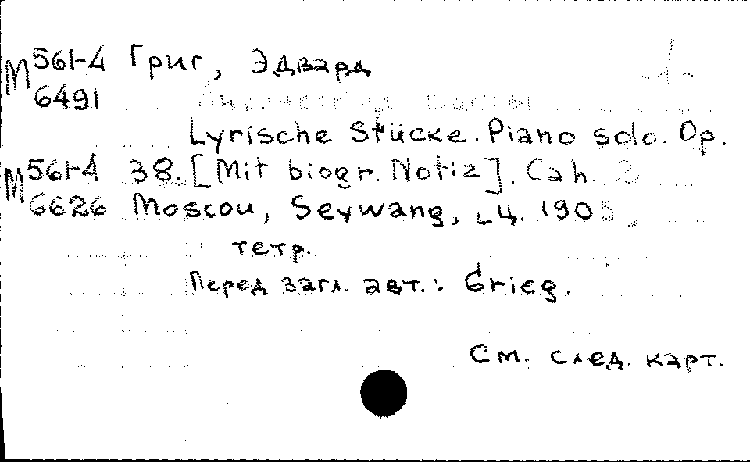 М 561-4 Григ, Эдвард -1-
6491
Lyrische Stücke. Piano solo. Op.
М 561-4 38. [Mit biogr. Notiz]. Cah. 2
6626 Moscou, Seywang, ц. 1905,
тетр.
Перед загл. авт.: Grieg.
См. след. карт.